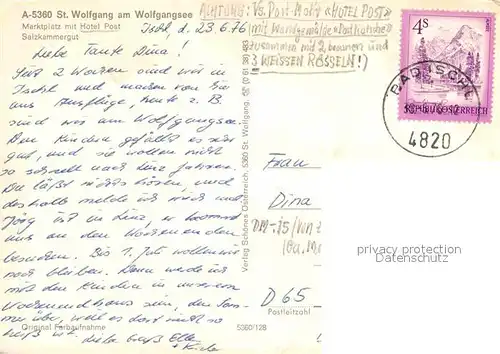 A-5360 St. Wolfgang am Wolfgangsee
Marktplatz mit Hotel Post
Salzkammergut
Ischl, d. 23.6.76
ACHTUNG: Vs. Post-Motiv «HOTEL POST»
mit Wandgemälde «Postkutsche»
zusammen mit 2 braunen und
3 WEISSEN RÖSSELN!)
Liebe Tante Dina!
Für 2 Wochen sind wir in
Ischl und machen von hier
aus Ausflüge, heute z. B.
sind wir am Wolfgangsee.
Den Kindern gefällt es sehr
gut, und sie wollen nicht
so schnell nach Linz fahren.
Du läßt nichts hören, und
deshalb melde ich mich mal.
Jörg ist in Linz, er kommt
uns an den Wochenenden
besuchen. Bis 1. Juli wollen wir
noch bleiben. Dann werde ich
mit den Kindern in unserem
Wochenendhaus sein, den
über, weil es dort nicht so
heiß ist. Liebe Grüße
Original Farbaufnahme
5360/128
Verlag Schönes Österreich, 5360 St. Wolfgang,
4S
REPUBLIK ÖSTERREICH
BAD ISCHL
4820
Frau
Dina
DM
D 65
Postleitzahl
privacy protection
privacy protection